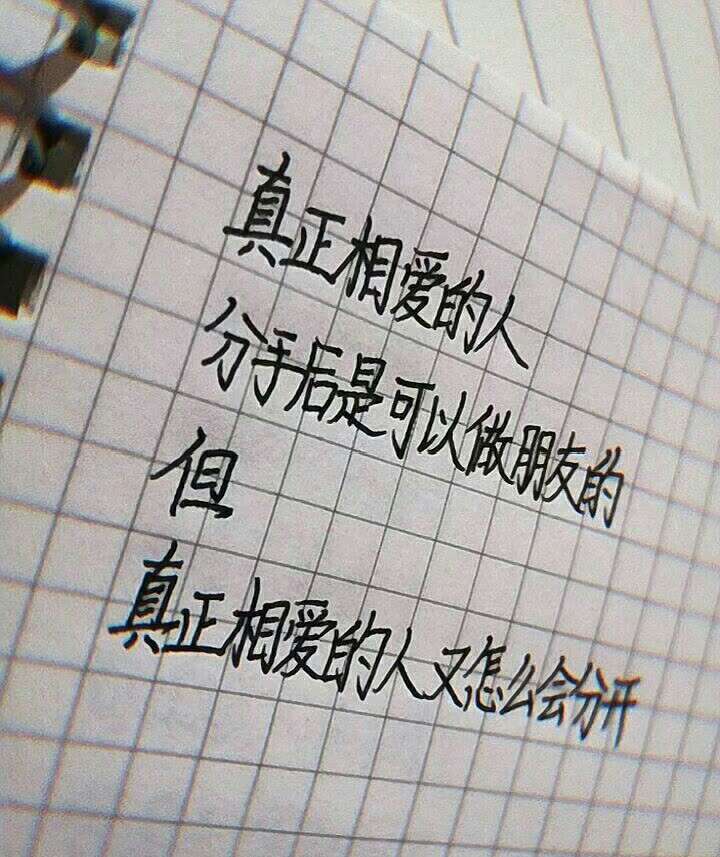 真正相爱的人
分手后是可以做朋友的
但
真正相爱的人又怎么会分开